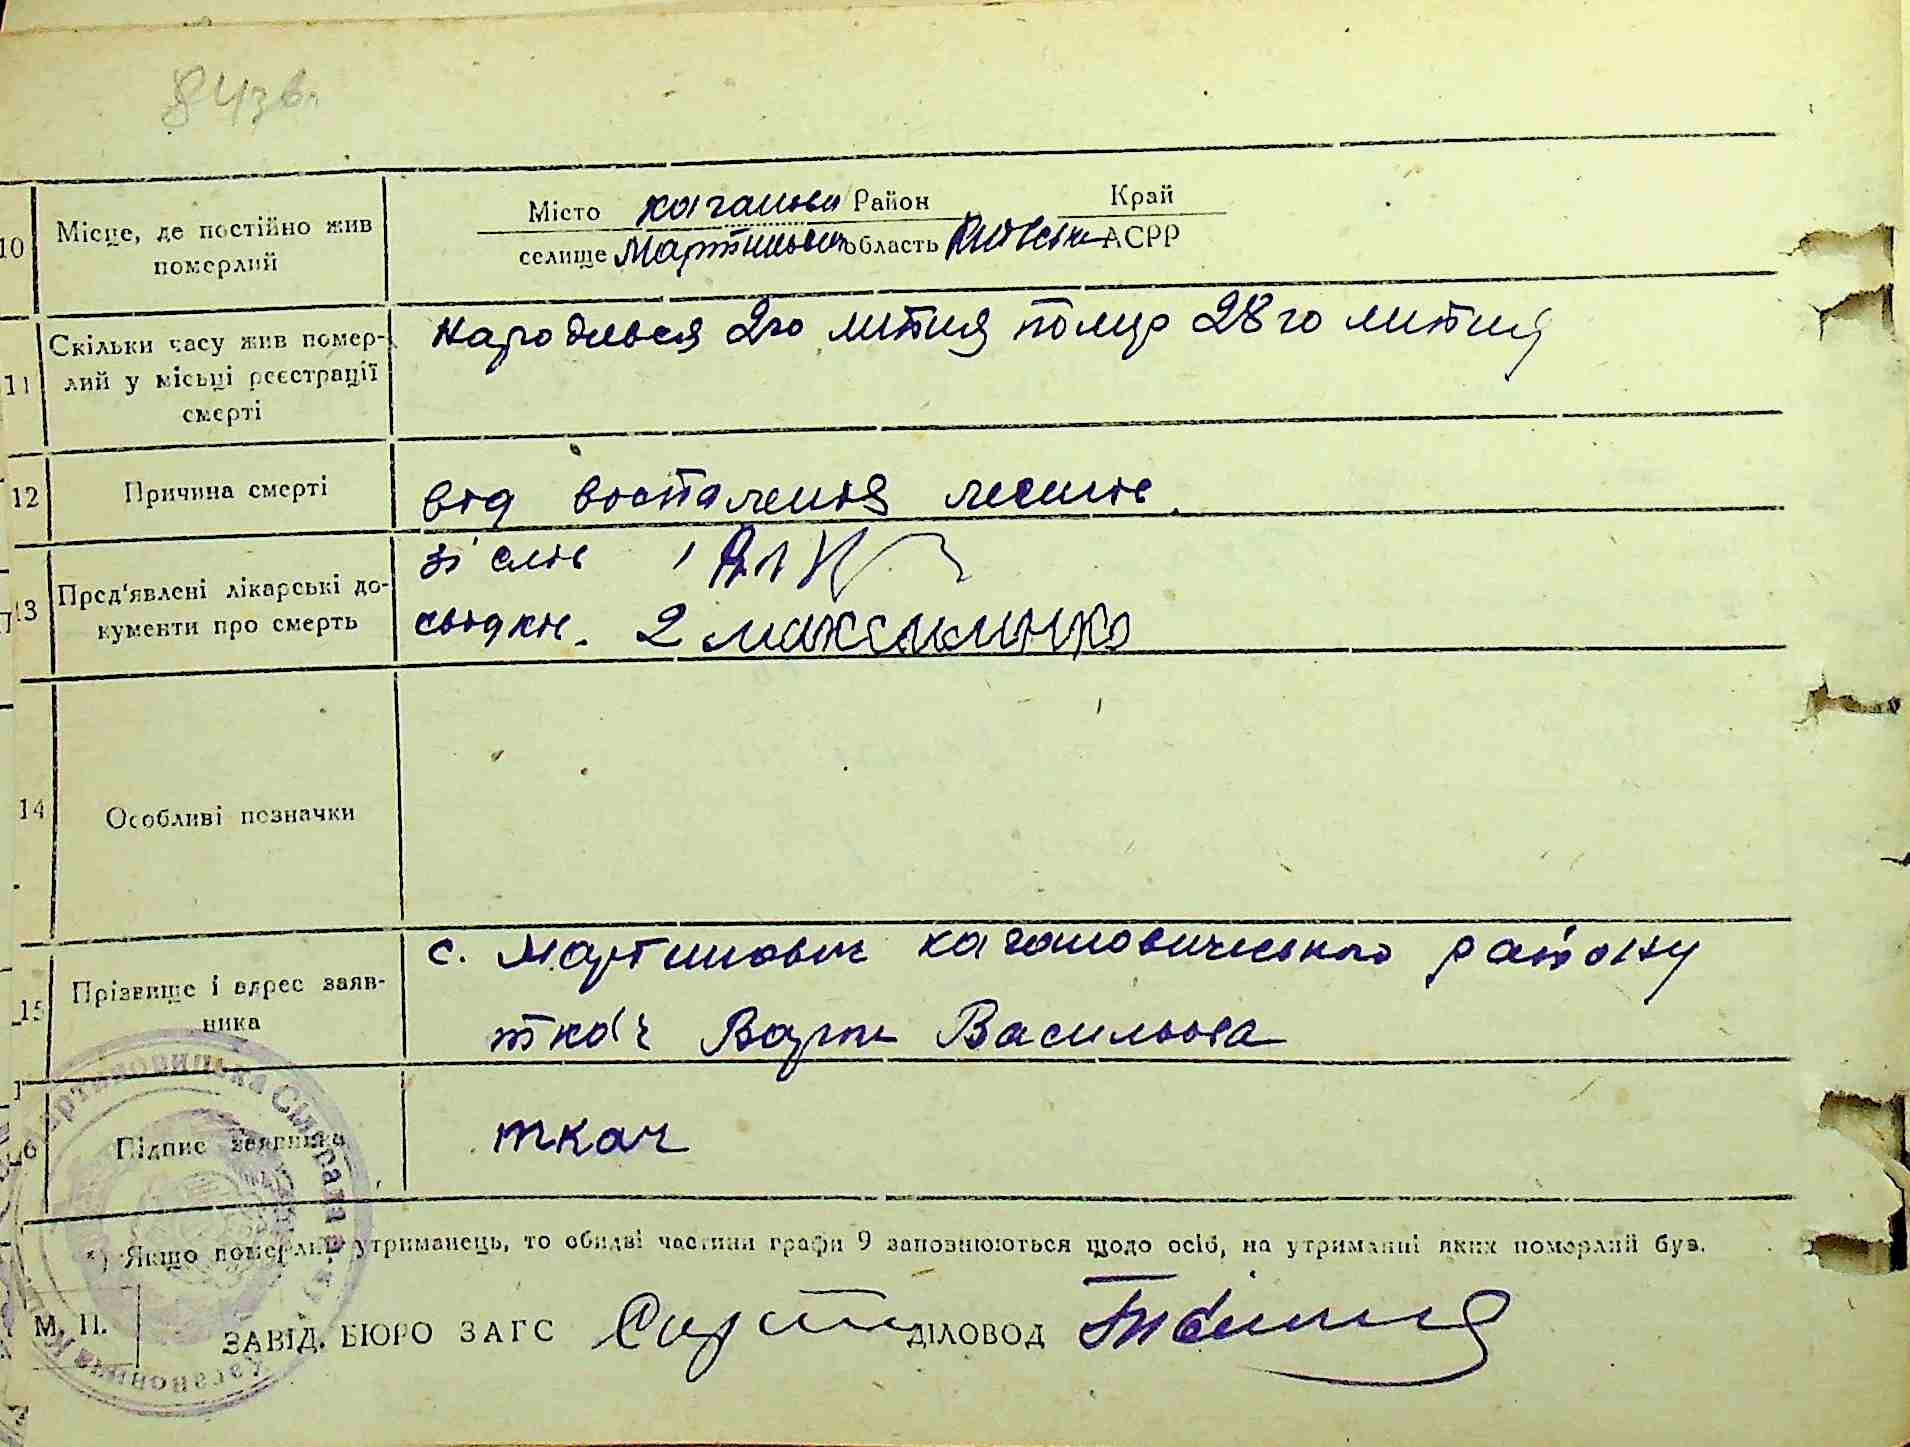 84зв.
10 Місце, де постійно жив померлий
Місто Каганови Район Край
селище Мартинович область Київськ АСРР
11 Скільки часу жив померлий у місці реєстрації смерті
Народився 2го лютня помер 28го лютня
12 Причина смерті
від воспаленія легків.
13 Пред'явлені лікарські документи про смерть
зі слів 1
свідків. 2 Максименко
14 Особливі позначки
15 Прізвище і адрес заявника
с. Мартинович кагановического району
ткач Варк Васильовa
16 Підпис заявника
ткач
*) Якщо померлий утриманець, то обидві частини графи 9 заповнюються щодо осіб, на утриманні яких померлий був.
М. П.
ЗАВІД. БЮРО ЗАГС ДІЛОВОД